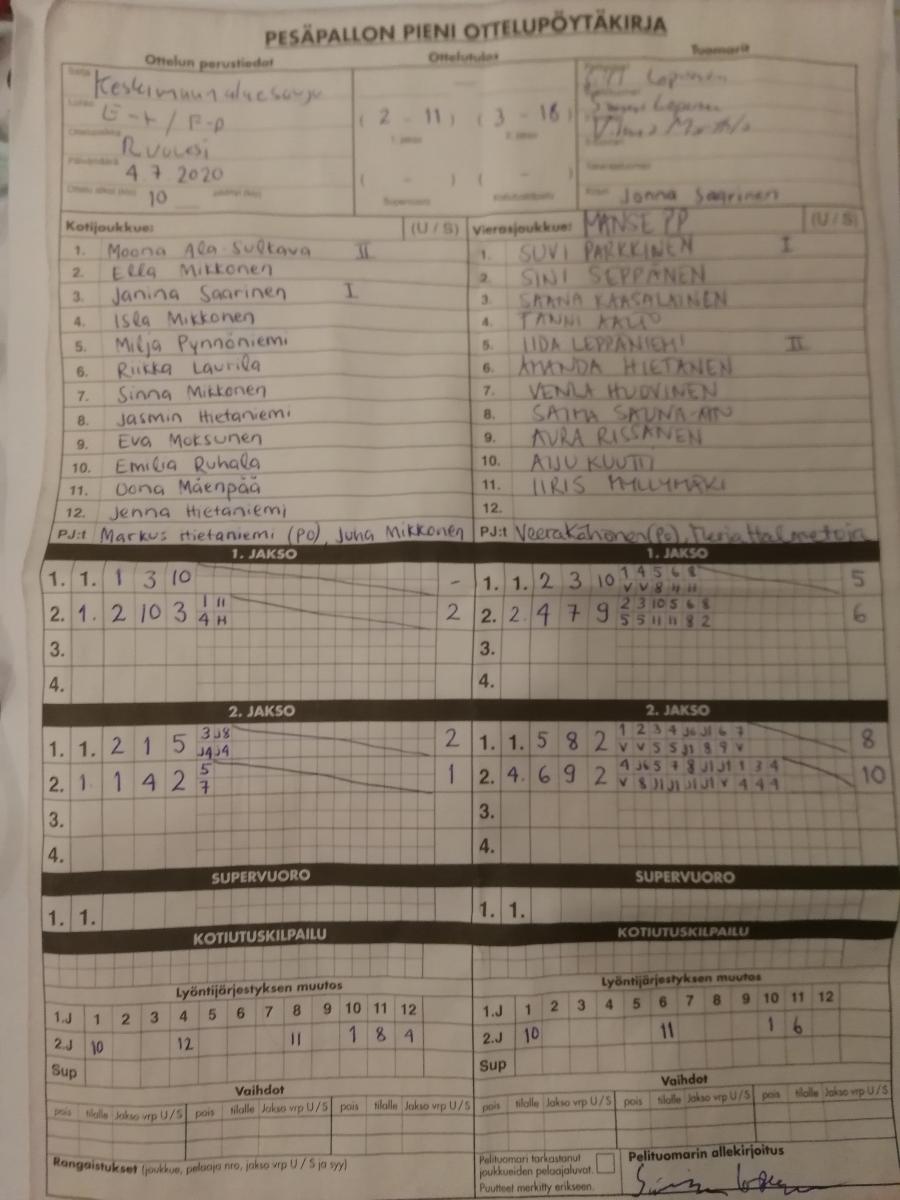 PESÄPALLON PIENI OTTELUPÖYTÄKIRJA
Ottelun perustiedot
Ottelutulos
Tuomarit
E-t / F-p
Ruovesi
4.7 2020
10
( 2 - 11 ) ( 3 - 18 )
( - ) ( - )
Jonna Saarinen
Kotijoukkue: (U / S)
1. Moona Ala-Sultava II
2. Ella Mikkonen
3. Janina Saarinen I
4. Isla Mikkonen
5. Milja Pynnöniemi
6. Riikka Laurila
7. Sinna Mikkonen
8. Jasmin Hietaniemi
9. Eva Moksunen
10. Emilia Ruhala
11. Oona Mäenpää
12. Jenna Hietaniemi
PJ:t Markus Hietaniemi (PO), Juha Mikkonen
Vierasjoukkue: MANSE PP (U / S)
1. SUVI PARKKINEN I
2. SINI SEPPÄNEN
3. SAANA KAASALAINEN
4. TANNI AALTO
5. IIDA LEPPÄNIEMI II
6. AMANDA HIETANEN
7. VENLA HUOVINEN
8. SAIMA SAUNA-AHO
9. AURA RISSANEN
10. AIJU KUUTTI
11. IIRIS MYLLYMÄKI
12.
PJ:t Veera Kähönen (PO), Merja Halmetoja
1. JAKSO
1. 1. 1 3 10 -
2. 1. 2 10 3 1 11 2
4 H
3.
4.
1. JAKSO
1. 1. 2 3 10 1 4 5 6 8 5
V V 8 11 11
2. 2. 4 7 9 2 3 10 5 6 8 6
5 5 11 11 8 2
3.
4.
2. JAKSO
1. 1. 2 1 5 3 J8 2
J4 J4
2. 1. 1 4 2 5 1
7
3.
4.
2. JAKSO
1. 1. 5 8 2 1 2 3 4 J6 J1 6 7 8
V V 5 5 J1 8 9 V
2. 4. 6 9 2 4 J6 5 7 8 J1 J1 1 3 4 10
V 8 J1 J1 J1 J1 V 4 4 4
3.
4.
SUPERVUORO
1. 1.
SUPERVUORO
1. 1.
KOTIUTUSKILPAILU
KOTIUTUSKILPAILU
Lyöntijärjestyksen muutos
1.J 1 2 3 4 5 6 7 8 9 10 11 12
2.J 10 12 11 1 8 4
Sup
Lyöntijärjestyksen muutos
1.J 1 2 3 4 5 6 7 8 9 10 11 12
2.J 10 11 1 6
Sup
Vaihdot
pois tilalle Jakso vrp U / S pois tilalle Jakso vrp U / S pois tilalle Jakso vrp U / S
Vaihdot
pois tilalle Jakso vrp U / S pois tilalle Jakso vrp U / S pois tilalle Jakso vrp U / S
Rangaistukset (joukkue, pelaaja nro, jakso vrp U / S ja syy)
Pelituomari tarkastanut
joukkueiden pelaajaluvat.
Puutteet merkitty erikseen.
Pelituomarin allekirjoitus